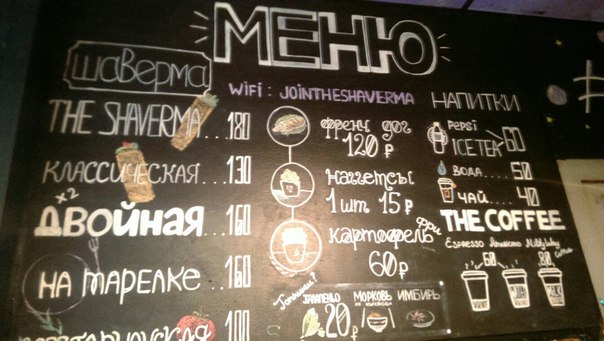 МЕНЮ
шаверма
WiFi : JOINTHESHAVERMA
THE SHAVERMA... 180
КЛАССИЧЕСКАЯ... 130
x2
ДВОЙНАЯ... 160
НА ТАРЕЛКЕ 160
100
френч дог
120 ₽
наггетсы
1 шт 15 ₽
картофель фри
60 ₽
МОРКОВЬ ИМБИРЬ
20 ₽
НАПИТКИ
PEPSI
ICE TEA 60
ВОДА... 50
ЧАЙ... 40
THE COFFEE
Espresso Americano
60 80
#